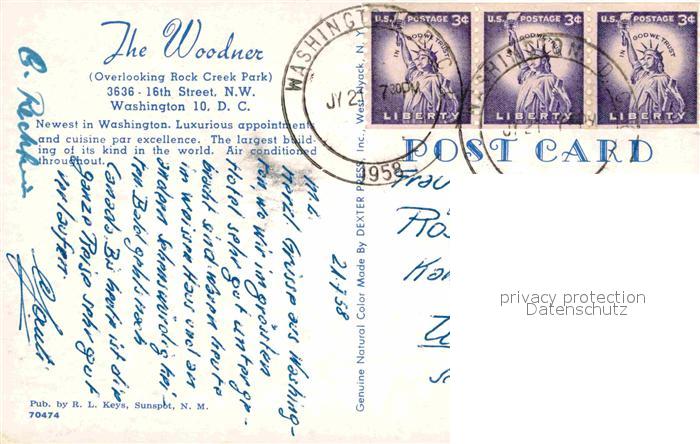 The Woodner
(Overlooking Rock Creek Park)
3636 - 16th Street, N.W.
Washington 10, D. C.
Newest in Washington. Luxurious appointments
and cuisine par excellence. The largest build-
ing of its kind in the world. Air conditioned
throughout.
21-7-58
M. L.
Herzl. Grüsse aus Washing-
ton wo wir im grössten
Hotel sehr gut unterge-
bracht sind. Waren heute
im weissen Haus und an
andern Sehenswürdighei-
ten. Bald geht's nach
Canada. Bis heute ist die
ganze Reise sehr gut
verlaufen.
Pub. by R. L. Keys, Sunspot, N. M.
70474
Genuine Natural Color Made By DEXTER PRESS, Inc., West Nyack, N. Y.
U.S. POSTAGE 3¢
IN GOD WE TRUST
LIBERTY
U.S. POSTAGE 3¢
IN GOD WE TRUST
LIBERTY
U.S. POSTAGE 3¢
IN GOD WE TRUST
LIBERTY
WASHINGTON
JY 21
7 30 PM
1958
WASHINGTON, D.
POST CARD
Frau
privacy protection
Datenschutz